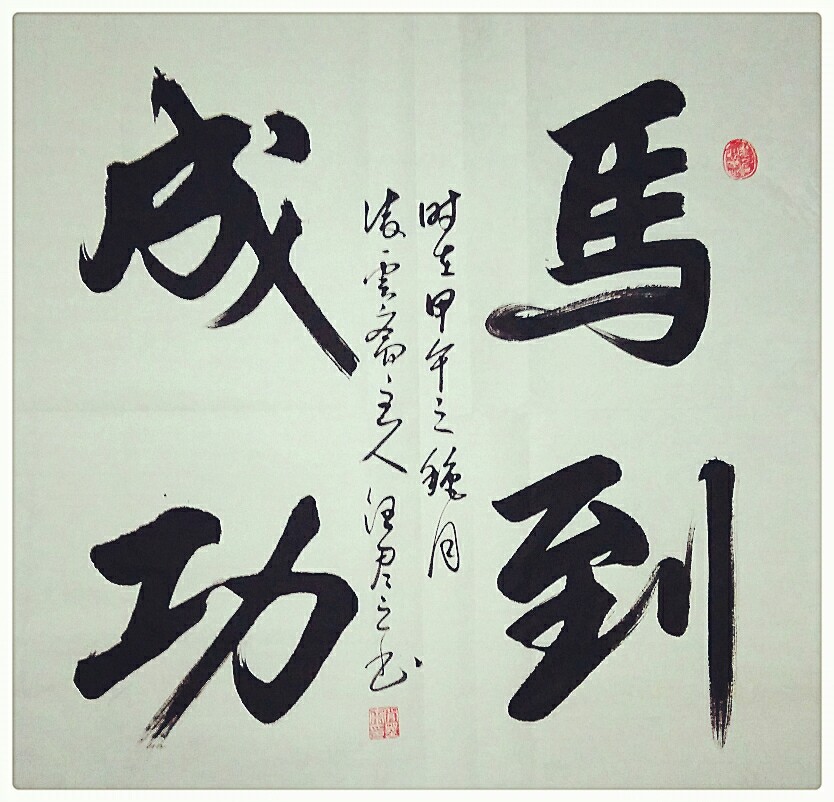 馬到
成功
時在甲午之穐月
凌雲齋主人汪君之书